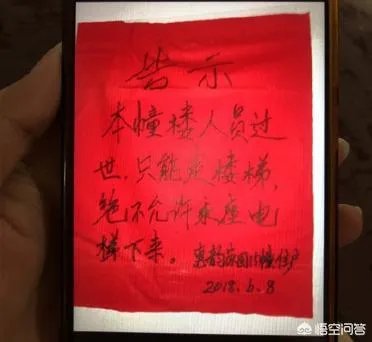 告示
本幢楼人员过
世,只能走楼梯,
绝不允许乘座电
梯下来。
韵家园幢住户
2018.6.8
悟空问答